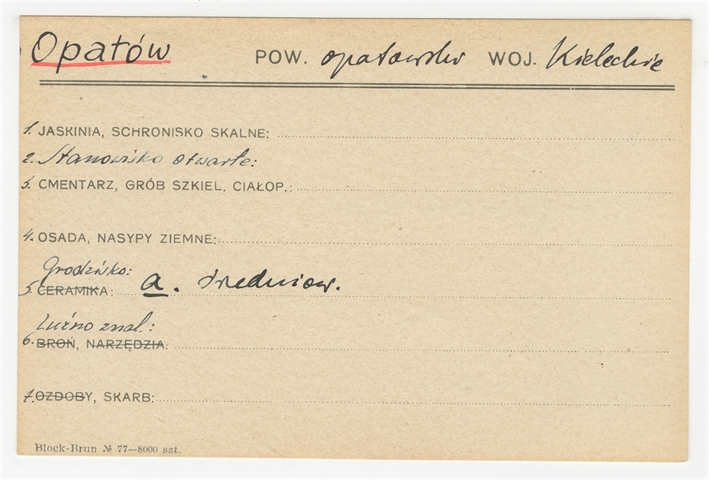 Opatów POW. opatowski WOJ. Kieleckie
1. JASKINIA, SCHRONISKO SKALNE:
2. Stanowisko otwarte:
3. CMENTARZ, GRÓB SZKIEL. CIAŁOP.:
4. OSADA, NASYPY ZIEMNE:
Grodzisko:
5. CERAMIKA: a. średniow.
Luźno znal.:
6. BROŃ, NARZĘDZIA:
7. OZDOBY, SKARB:
Block-Brun № 77—8000 szt.